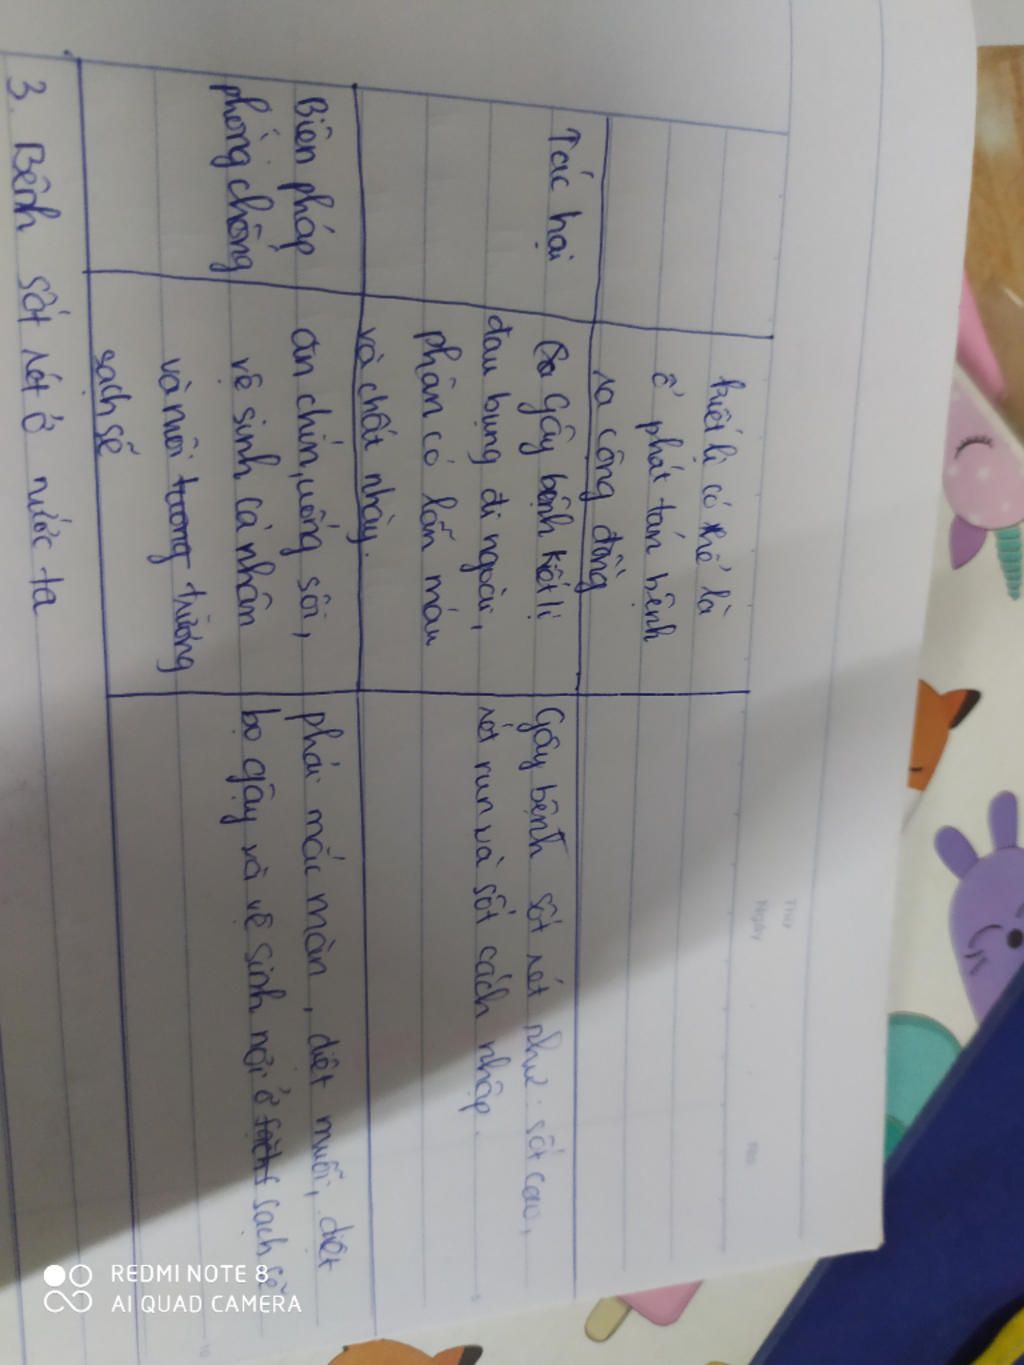 Thứ
Ngày
kiết lị có thể là
ổ phát tán bệnh
ra cộng đồng
Tác hại
Gây bệnh kiết lị
đau bụng đi ngoài,
phân có lẫn máu
và chất nhày.
Gây bệnh sốt rét như: sốt cao,
rét run và sốt cách nhập.
Biện pháp
phòng chống
ăn chín, uống sôi,
vệ sinh cá nhân
và môi tương trường
sạch sẽ
phải mắc màn, diệt muỗi, diệt
bọ gậy và vệ sinh nơi ở sạch sẽ
3. Bệnh sốt rét ở nước ta
REDMI NOTE 8
AI QUAD CAMERA